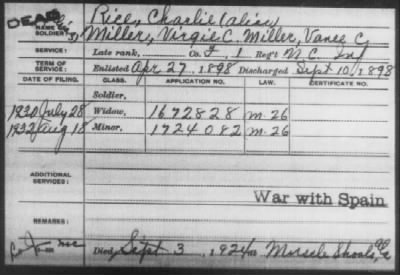 DEAD
NAME OF SOLDIER: Rice, Charlie (alias)
Miller, Virgie C. Miller, Vance C.
SERVICE: Late rank, Co. F, 1 Reg't N.C. Inf
TERM OF SERVICE: Enlisted Apr 27, 1898 Discharged Sept 10, 1898
DATE OF FILING. CLASS. APPLICATION NO. LAW. CERTIFICATE NO.
Soldier,
1930 July 28 Widow, 1672828 M-26
1932 Aug 18 Minor, 1724082 M-26
ADDITIONAL SERVICES:
War with Spain
REMARKS:
Died Sept 3, 1924 at Shoals,